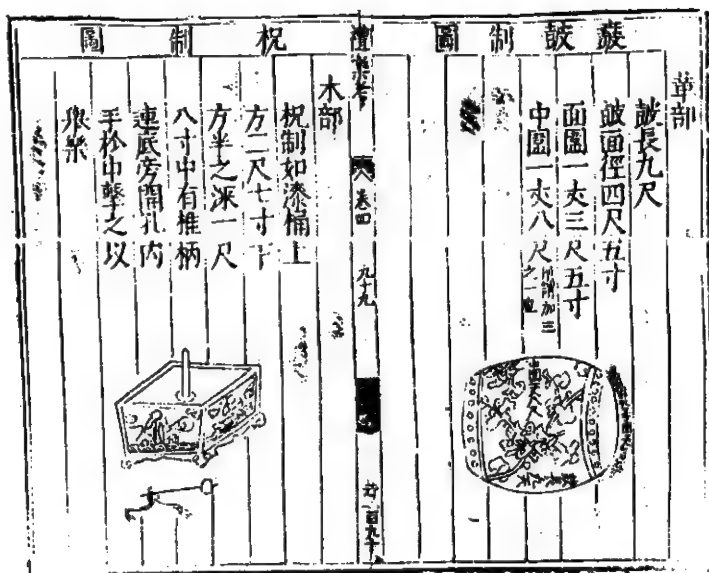 鼖皷制圖
革部
皷長九尺
皷面徑四尺五寸
面圍一丈三尺五寸
中圍一丈八尺所謂加三之一也
禮樂考
卷四
九十九
柷制圖
木部
柷制如漆桶上
方二尺七寸下
方半之深一尺
八寸中有椎柄
連底旁開孔內
手於中擊之以
樂